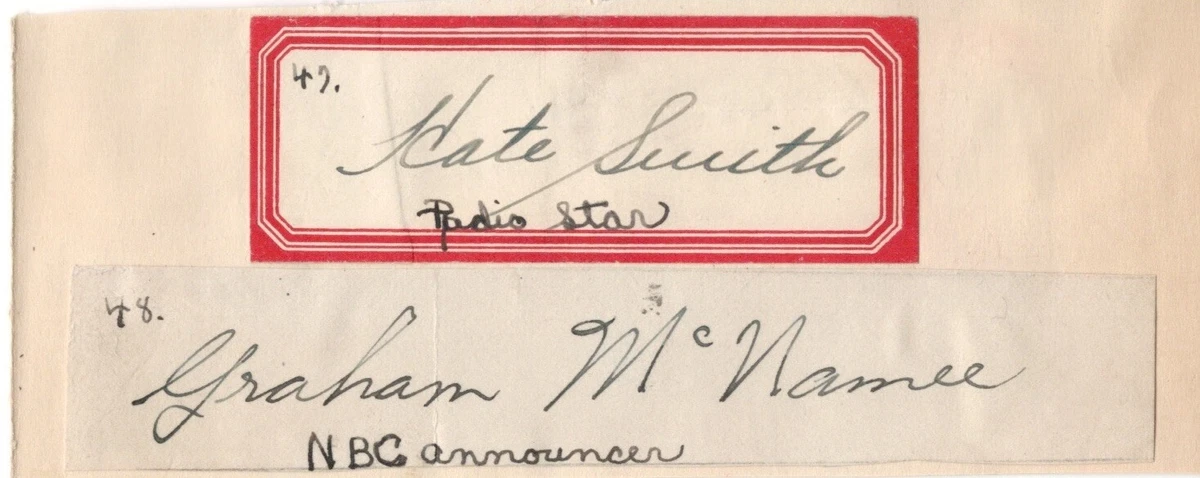 47.
Kate Smith
Radio Star
48.
Graham McNamee
NBC announcer